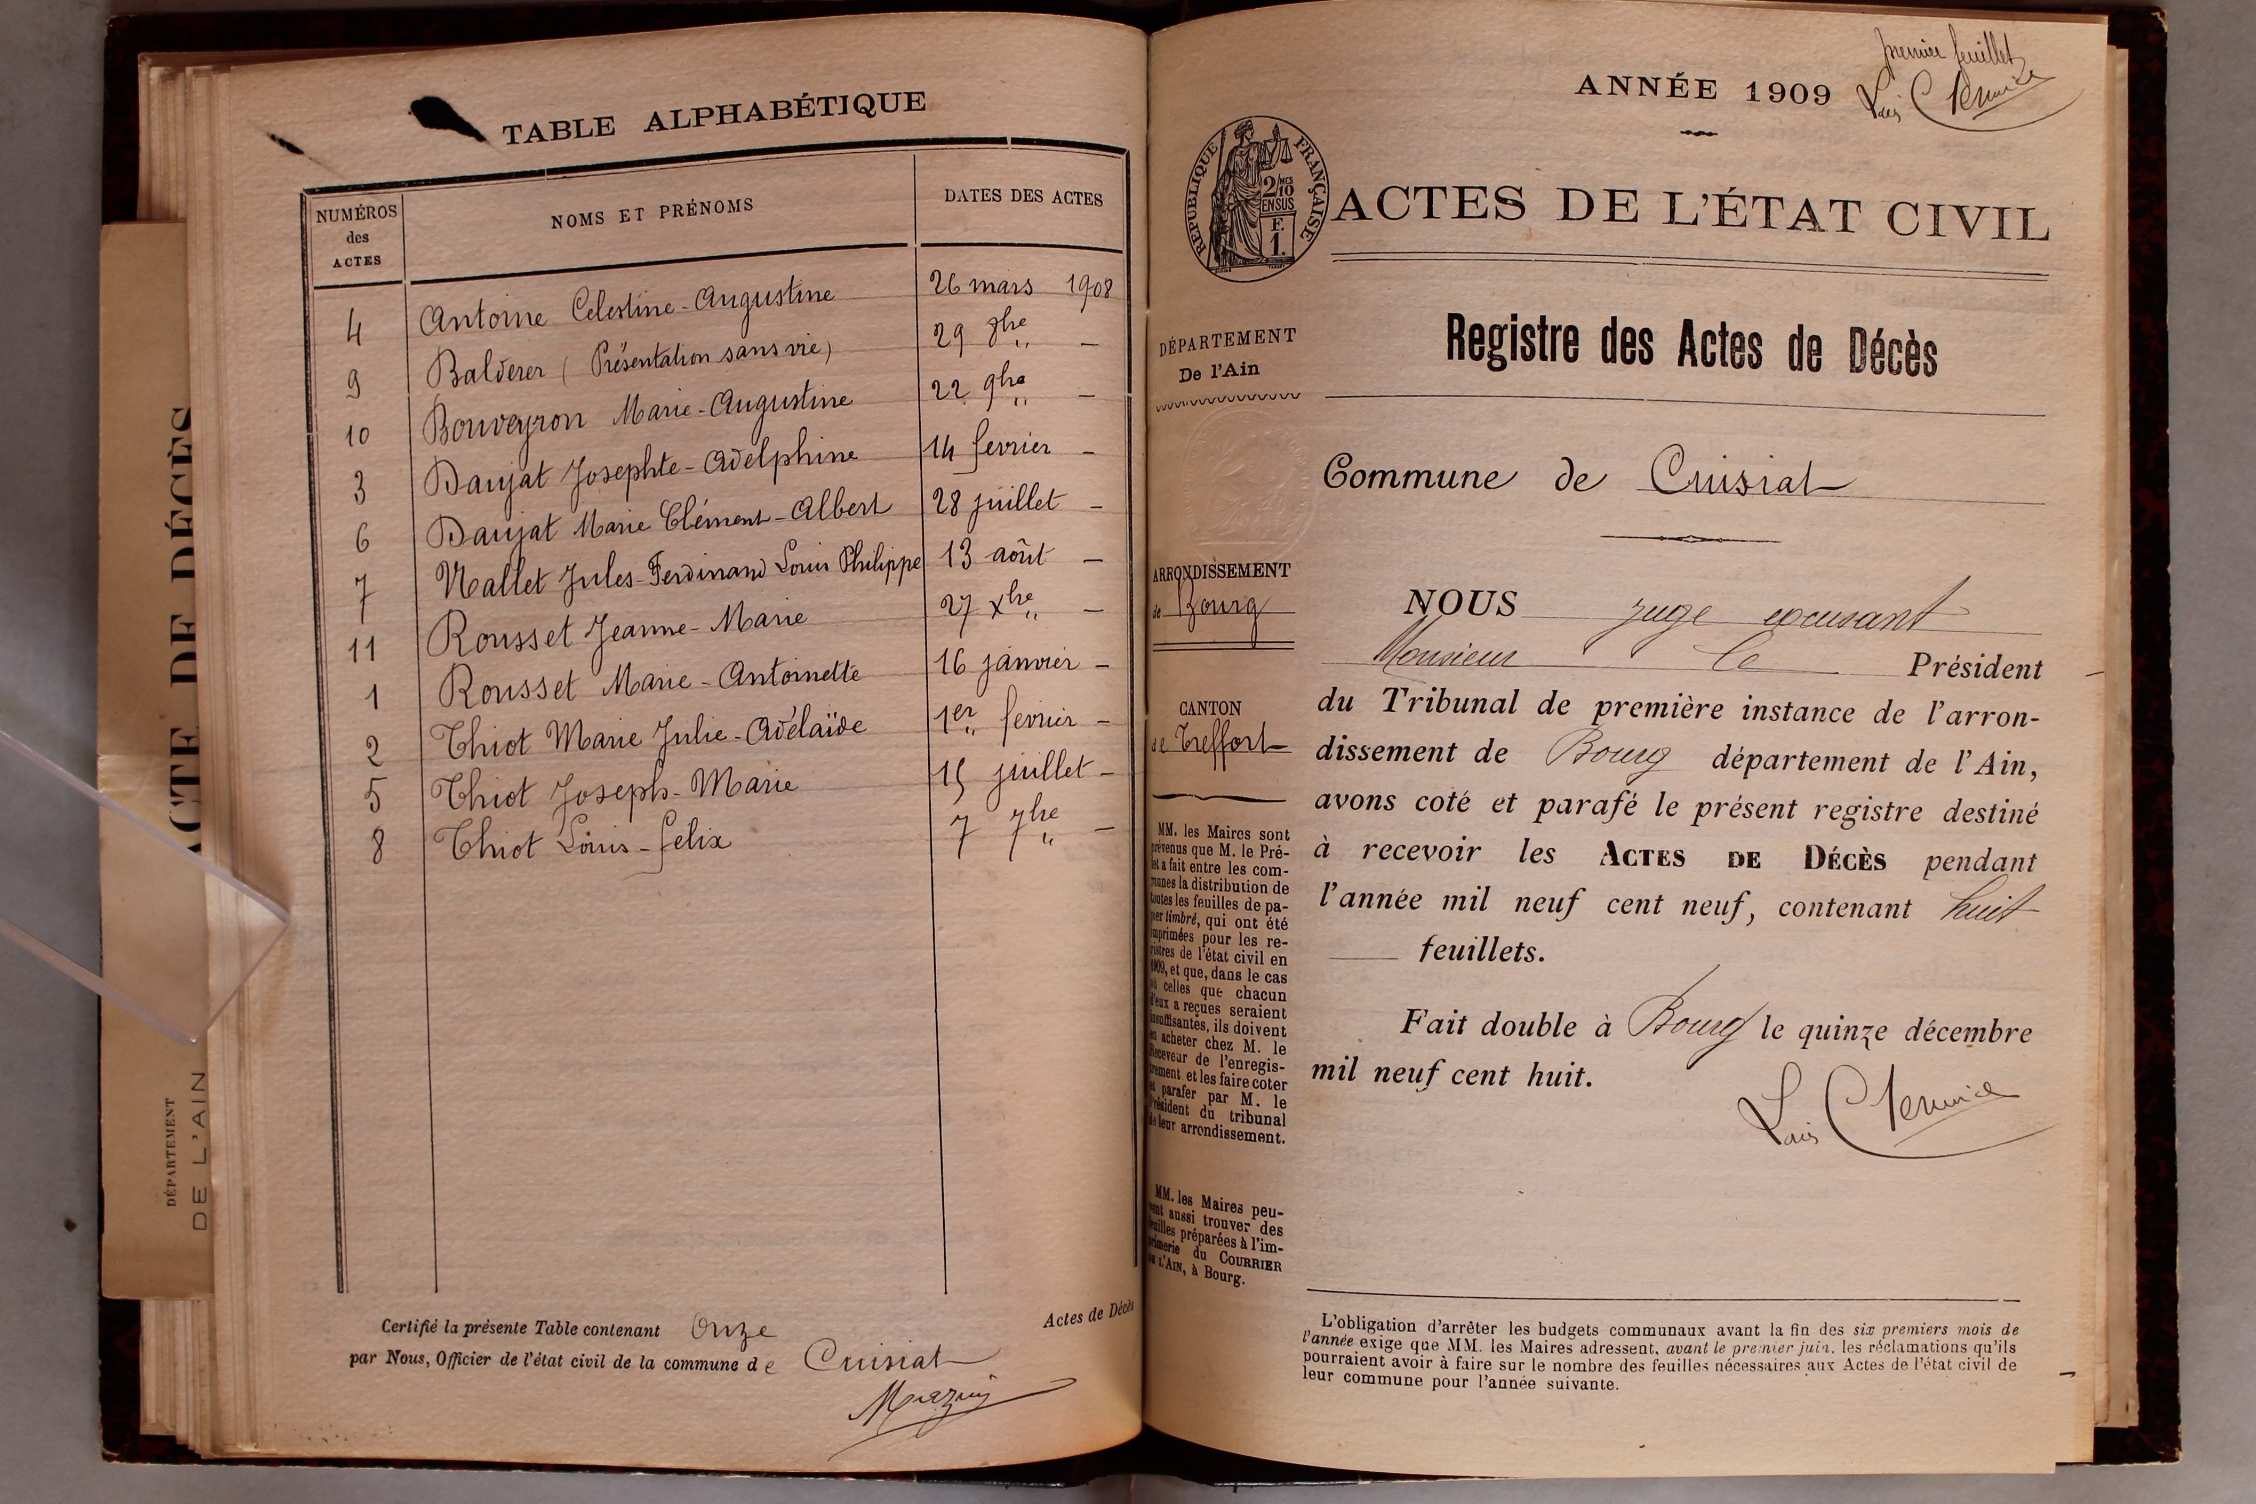 TABLE ALPHABÉTIQUE
NUMÉROS des ACTES
NOMS ET PRÉNOMS
DATES DES ACTES
4 Antoine Celestine-Augustine 26 mars 1908
9 Balderer (Présentation sans vie) 29 8bre „ —
10 Bouveyron Marie-Augustine 22 9bre „ —
3 Daujat Josephte-Adelphine 14 fevrier —
6 Daujat Marie Clément-Albert 28 juillet —
7 Nallet Jules-Ferdinand Louis Philippe 13 août —
11 Rousset Jeanne-Marie 27 Xbre „ —
1 Rousset Marie-Antoinette 16 janvier —
2 Thiot Marie Julie-Adélaïde 1er „ fevrier —
5 Thiot Joseph-Marie 15 juillet —
8 Thiot Louis-felix 7 7bre „ —
Certifié la présente Table contenant Onze Actes de Décès
par Nous, Officier de l'état civil de la commune de Cuisiat
ACTE DE DÉCÈS
DÉPARTEMENT
DE L'AIN
premier feuillet
ANNÉE 1909
RÉPUBLIQUE FRANÇAISE
2/10 MES
EN SUS
F.
1.
ACTES DE L'ÉTAT CIVIL
DÉPARTEMENT
De l'Ain
Registre des Actes de Décès
Commune de Cuisiat
ARRONDISSEMENT
de Bourg
CANTON
de Treffort
MM. les Maires sont
prévenus que M. le Pré-
fet a fait entre les com-
munes la distribution de
toutes les feuilles de pa-
pier timbré, qui ont été
imprimées pour les re-
gistres de l'état civil en
1909, et que, dans le cas
où celles que chacun
d'eux a reçues seraient
insuffisantes, ils doivent
en acheter chez M. le
Receveur de l'enregis-
trement et les faire coter
et parafer par M. le
Président du tribunal
de leur arrondissement.
MM. les Maires peu-
vent aussi trouver des
feuilles préparées à l'im-
primerie du COURRIER
DE L'AIN, à Bourg.
NOUS juge excusant
Monsieur le Président
du Tribunal de première instance de l'arron-
dissement de Bourg département de l'Ain,
avons coté et parafé le présent registre destiné
à recevoir les ACTES DE DÉCÈS pendant
l'année mil neuf cent neuf, contenant huit
feuillets.
Fait double à Bourg le quinze décembre
mil neuf cent huit.
L'obligation d'arrêter les budgets communaux avant la fin des six premiers mois de
l'année exige que MM. les Maires adressent, avant le premier juin, les réclamations qu'ils
pourraient avoir à faire sur le nombre des feuilles nécessaires aux Actes de l'état civil de
leur commune pour l'année suivante.